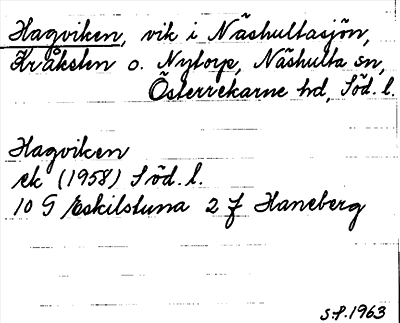 Hagviken, vik i Näshultasjön,
Kråksten o. Nytorp, Näshulta sn,
Österrekarne hd, Söd. l.
Hagviken
ek (1958) Söd. l.
10 G Eskilstuna 2 f Haneberg
S.P. 1963